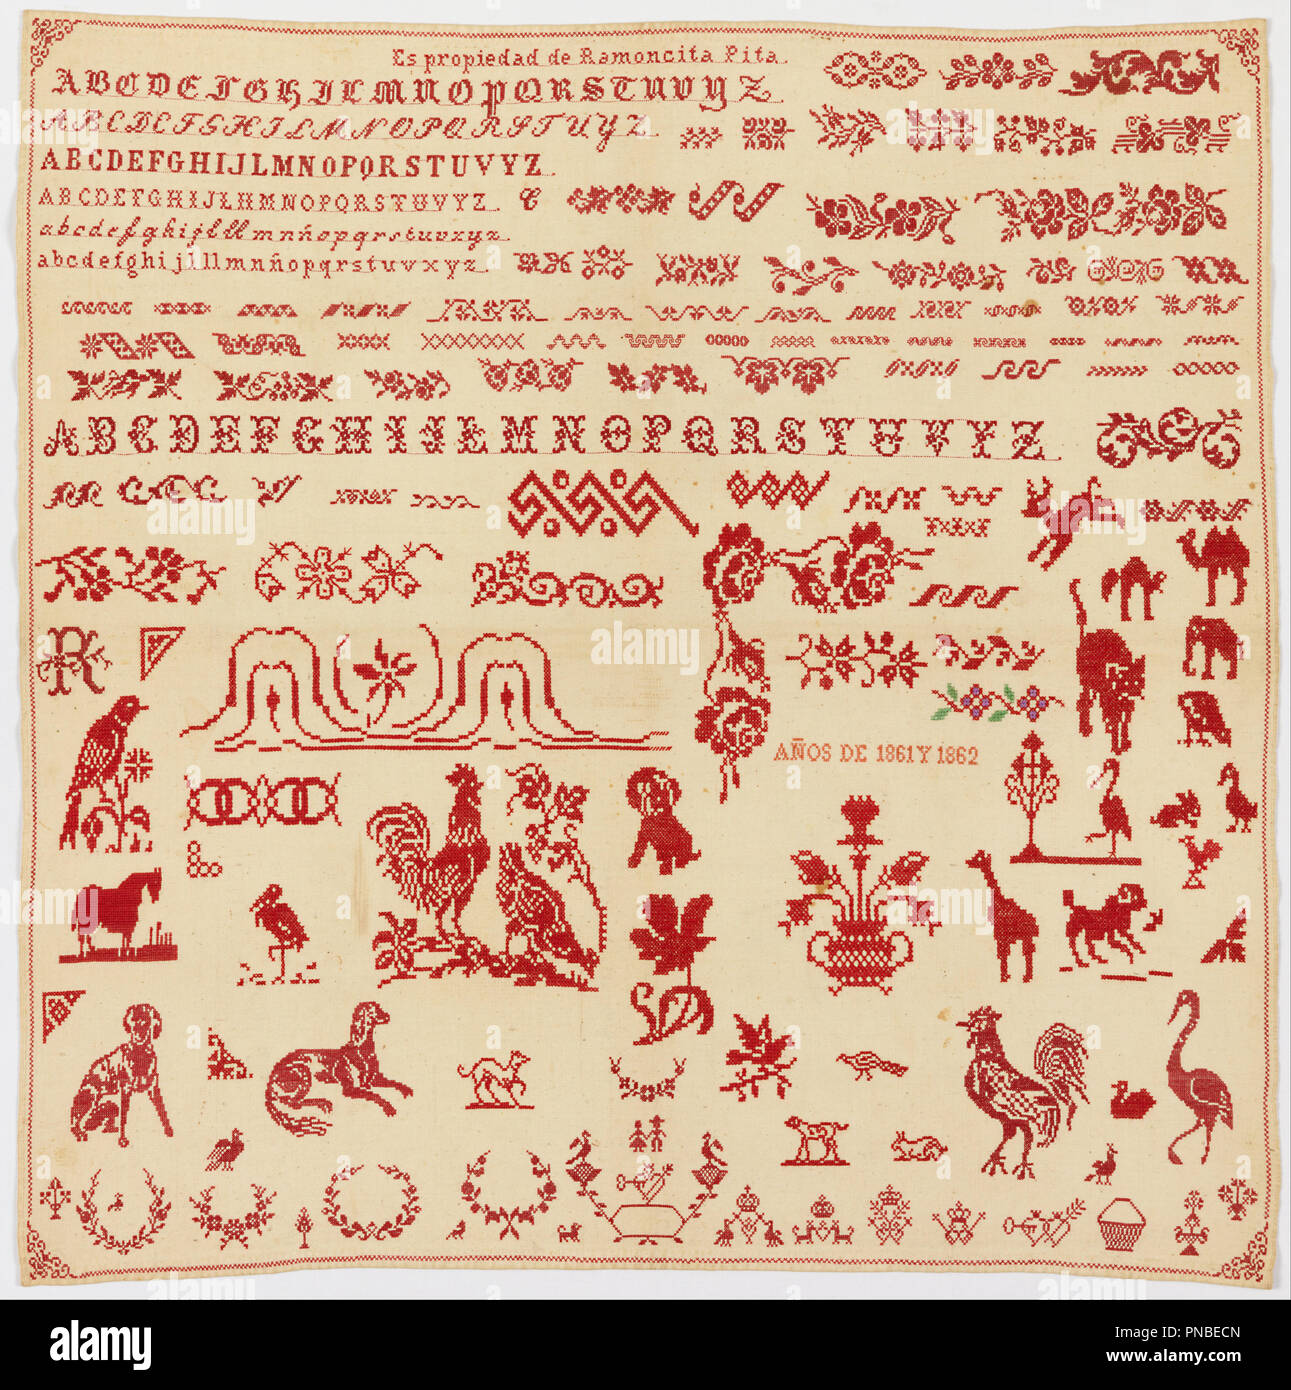 Es propiedad de Ramoncita Pita.
ABCDEFGHIJLMNOPQRSTUVYZ
ABCDEFGHIJLMNOPQRSTUYZ
ABCDEFGHIJLMNOPQRSTUVYZ
ABCDEFGHIJLMNOPQRSTUVYZ
abcdefghijlllmnñopqrstuvxyz
abcdefghijlllmnñopqrstuvxyz
ABCDEFGHIJLMNOPQRSTUVYZ
R
AÑOS DE 1861 Y 1862
alamy
Image ID: PNBECN
www.alamy.com